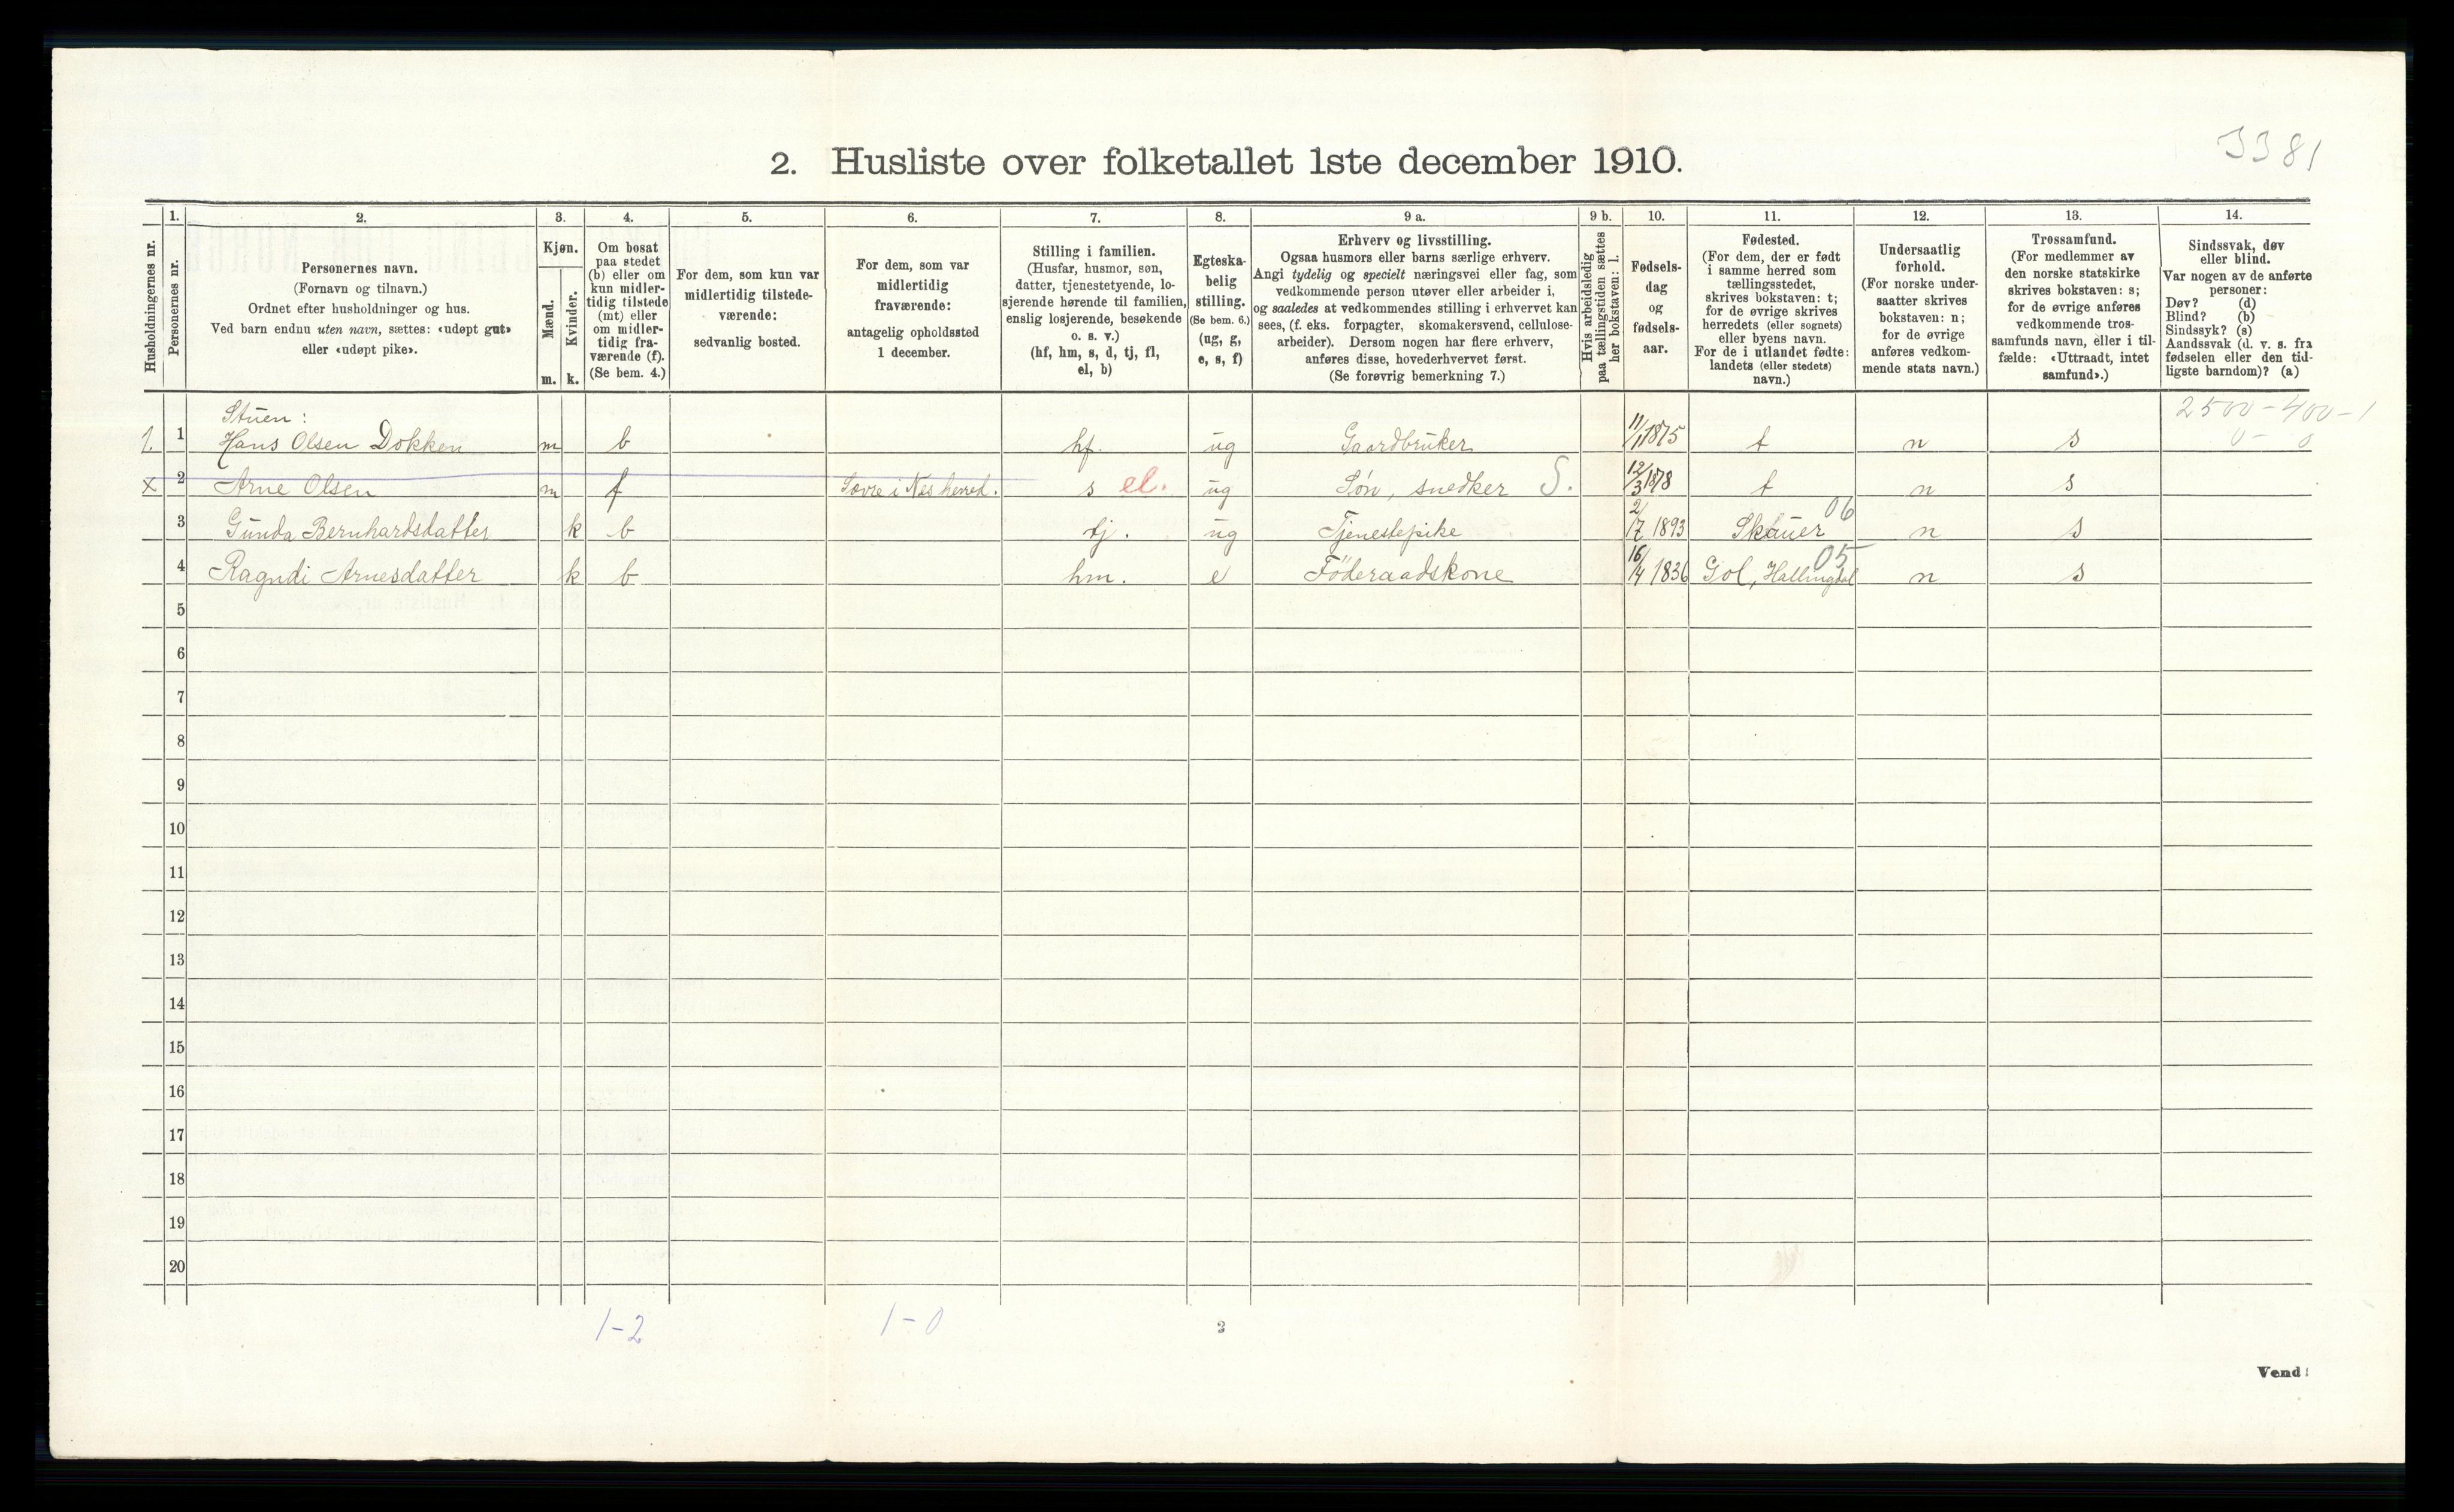 3381
2. Husliste over folketallet 1ste december 1910.
Husholdningernes nr.
1.
Personernes nr.
2.
Personernes navn.
(Fornavn og tilnavn.)
Ordnet efter husholdninger og hus.
Ved barn endnu uten navn, sættes: «udøpt gut»
eller «udøpt pike».
3.
Kjøn.
Mænd.
m.
Kvinder.
k.
4.
Om bosat
paa stedet
(b) eller om
kun midler-
tidig tilstede
(mt) eller
om midler-
tidig fra-
værende (f).
(Se bem. 4.)
5.
For dem, som kun var
midlertidig tilstede-
værende:
sedvanlig bosted.
6.
For dem, som var
midlertidig
fraværende:
antagelig opholdssted
1 december.
7.
Stilling i familien.
(Husfar, husmor, søn,
datter, tjenestetyende, lo-
sjerende hørende til familien,
enslig losjerende, besøkende
o. s. v.)
(hf, hm, s, d, tj, fl,
el, b)
8.
Egteska-
belig
stilling.
(Se bem. 6.)
(ug, g,
e, s, f)
9 a.
Erhverv og livsstilling.
Ogsaa husmors eller barns særlige erhverv.
Angi tydelig og specielt næringsvei eller fag, som
vedkommende person utøver eller arbeider i,
og saaledes at vedkommendes stilling i erhvervet kan
sees, (f. eks. forpagter, skomakersvend, cellulose-
arbeider). Dersom nogen har flere erhverv,
anføres disse, hovederhvervet først.
(Se forøvrig bemerkning 7.)
9 b.
Hvis arbeidsledig
paa tællingstiden sættes
her bokstaven: l.
10.
Fødsels-
dag
og
fødsels-
aar.
11.
Fødested.
(For dem, der er født
i samme herred som
tællingsstedet,
skrives bokstaven: t;
for de øvrige skrives
herredets (eller sognets)
eller byens navn.
For de i utlandet fødte:
landets (eller stedets)
navn.)
12.
Undersaatlig
forhold.
(For norske under-
saatter skrives
bokstaven: n;
for de øvrige
anføres vedkom-
mende stats navn.)
13.
Trossamfund.
(For medlemmer av
den norske statskirke
skrives bokstaven: s;
for de øvrige anføres
vedkommende tros-
samfunds navn, eller i til-
fælde: «Uttraadt, intet
samfund».)
14.
Sindssvak, døv
eller blind.
Var nogen av de anførte
personer:
Døv? (d)
Blind? (b)
Sindssyk? (s)
Aandssvak (d. v. s. fra
fødselen eller den tid-
ligste barndom)? (a)
2500-400-1
0- 0
Stuen:
1. 1 Hans Olsen Dokken m b hf. ug Gaardbruker 11/1 1875 t n s
x 2 Arne Olsen m f i Nes herred. s el. ug Søn, snedker S. 12/3 1878 t n s
3 Gunda Bernhardsdatter k b tj. ug Tjenestepike 2/17 1893 Skauer 06 n s
4 Ragndi Arnesdatter k b hm. e Föderaadskone 16/4 1836 Gol, Hallingdal 05 n s
5
6
7
8
9
10
11
12
13
14
15
16
17
18
19
20
1-2
1-0
2
Vend!